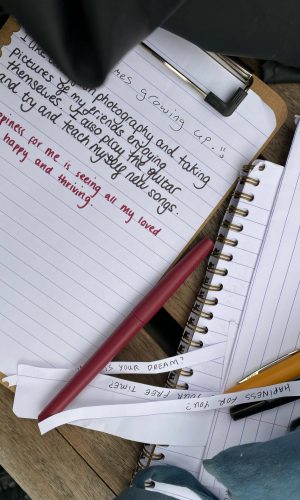 growing up."
photography and taking
pictures of my friends enjoying
themselves. I also play the guitar
and try and teach myself new songs.
ppiness for me is seeing all my loved
happy and thriving
IS YOUR DREAM?
YOUR FREE TIME?
HAPPINESS FOR YOU?